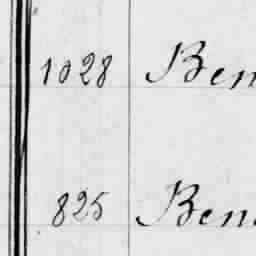 1028 Ben
825 Ben